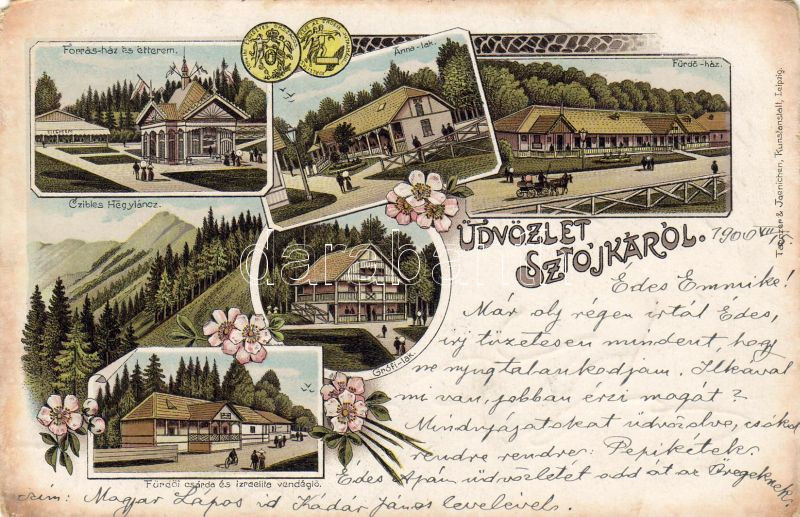 Forrás-ház és étterem.
Anna-lak.
Fürdő-ház.
Czibles Hegyláncz.
Grófi-lak
Fürdői csárda és izraelita vendéglő.
ÜDVÖZLET
SZTOJKÁRÓL.
Jaenichen, Kunstanstalt, Leipzig.
darabanth
1900 VII
Édes Emmike!
Már oly régen irtál Édes,
irj tüzetesen mindent, hogy
ne nyugtalankodjam. Ilkával
mi van, jobban érzi magát?
Mindnyájatokat üdvözölve, csókol
rendre rendre: Pepikétek.
Édes Apám üdvözletét add át az Öregeknek.
czim: Magyar Lápos id Kádár János levelével.